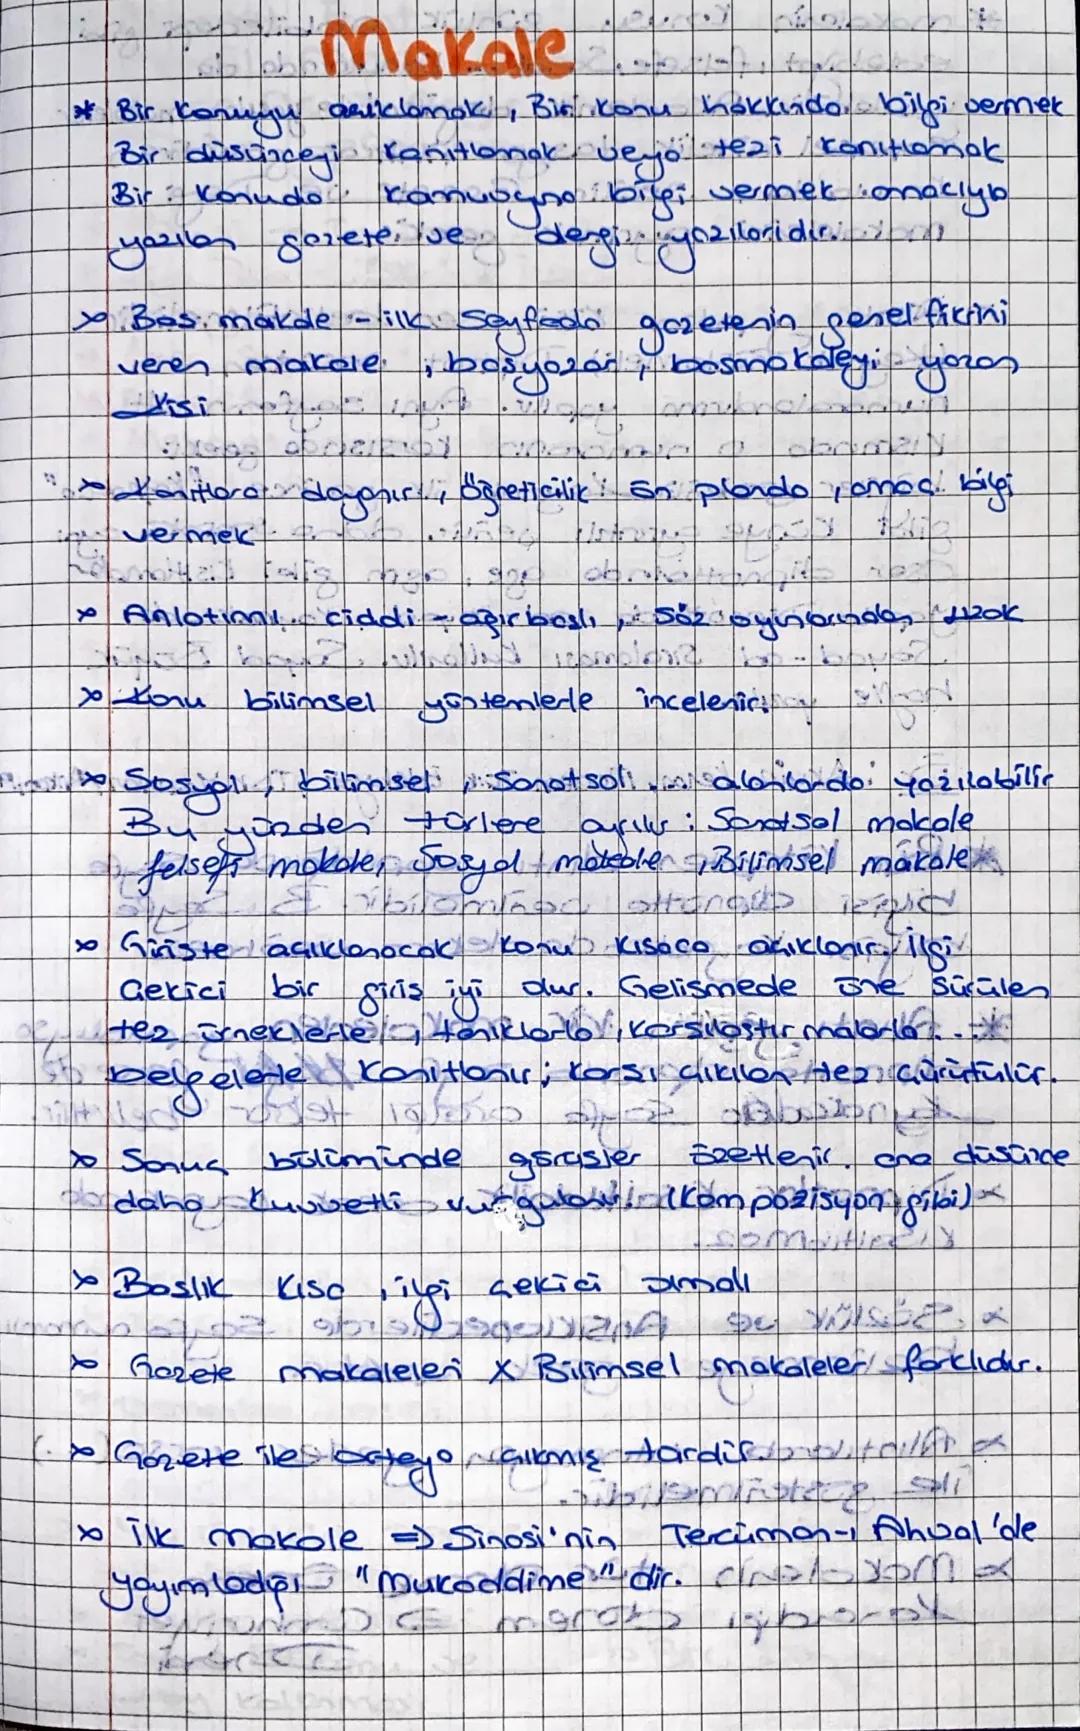 Makale
* Bir konuyu açıklamak, Bir konu hakkında bilgi vermek
Bir düşünceyi kanıtlamak veya tezi kanıtlamak
Bir konuda kamuoyna bilgi vermek amacıyla
yazılan gazete ve dergi yazılarıdır.
x Baş makale - ilk Sayfada gazetenin genel fikrini
veren makale ; başyazar, başmakaleyi yazan
kişi
x Kanıtlara dayanır, Öğreticilik ön planda, amaç bilgi
vermek
x Anlatımı ciddi - ağır başlı, söz oyunlarından uzak
x Konu bilimsel yöntemlerle incelenir.
x Sosyal, bilimsel, Sanatsal alanlarda yazılabilir
Bu yüzden türlere ayrılır : Sanatsal makale
felsefi makale, Sosyal makale, Bilimsel makale
x Girişte açıklanacak konu kısaca açıklanır. İlgi
Çekici bir giriş iyi olur. Gelişmede öne Sürülen
tez örneklerle, tanıklarla, karşılaştırmalarla...
belgelerle kanıtlanır; karşı çıkılan tez çürütülür.
x Sonuç bölümünde görüşler özetlenir. ana düşünce
daha kuvvetli vurgulanır. (kompozisyon gibi)
x Başlık kısa, ilgi çekici olmalı
x Gazete makaleleri X Bilimsel makaleler farklıdır.
x Gazete ile ortaya çıkmış türdür.
x İlk makale => Şinasi'nin Tercüman-ı Ahval'de
yayımladığı "Mukaddime" dir.